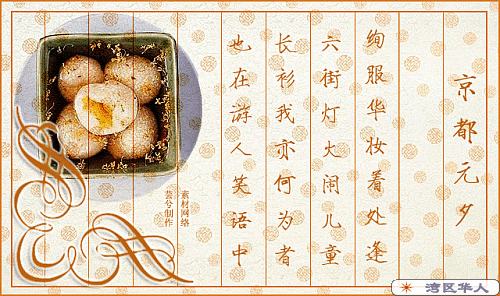 京都元夕
绚服华妆着处逢
六街灯火闹儿童
长衫我亦何为者
也在游人笑语中
素材网络
芸兮制作
湾区华人